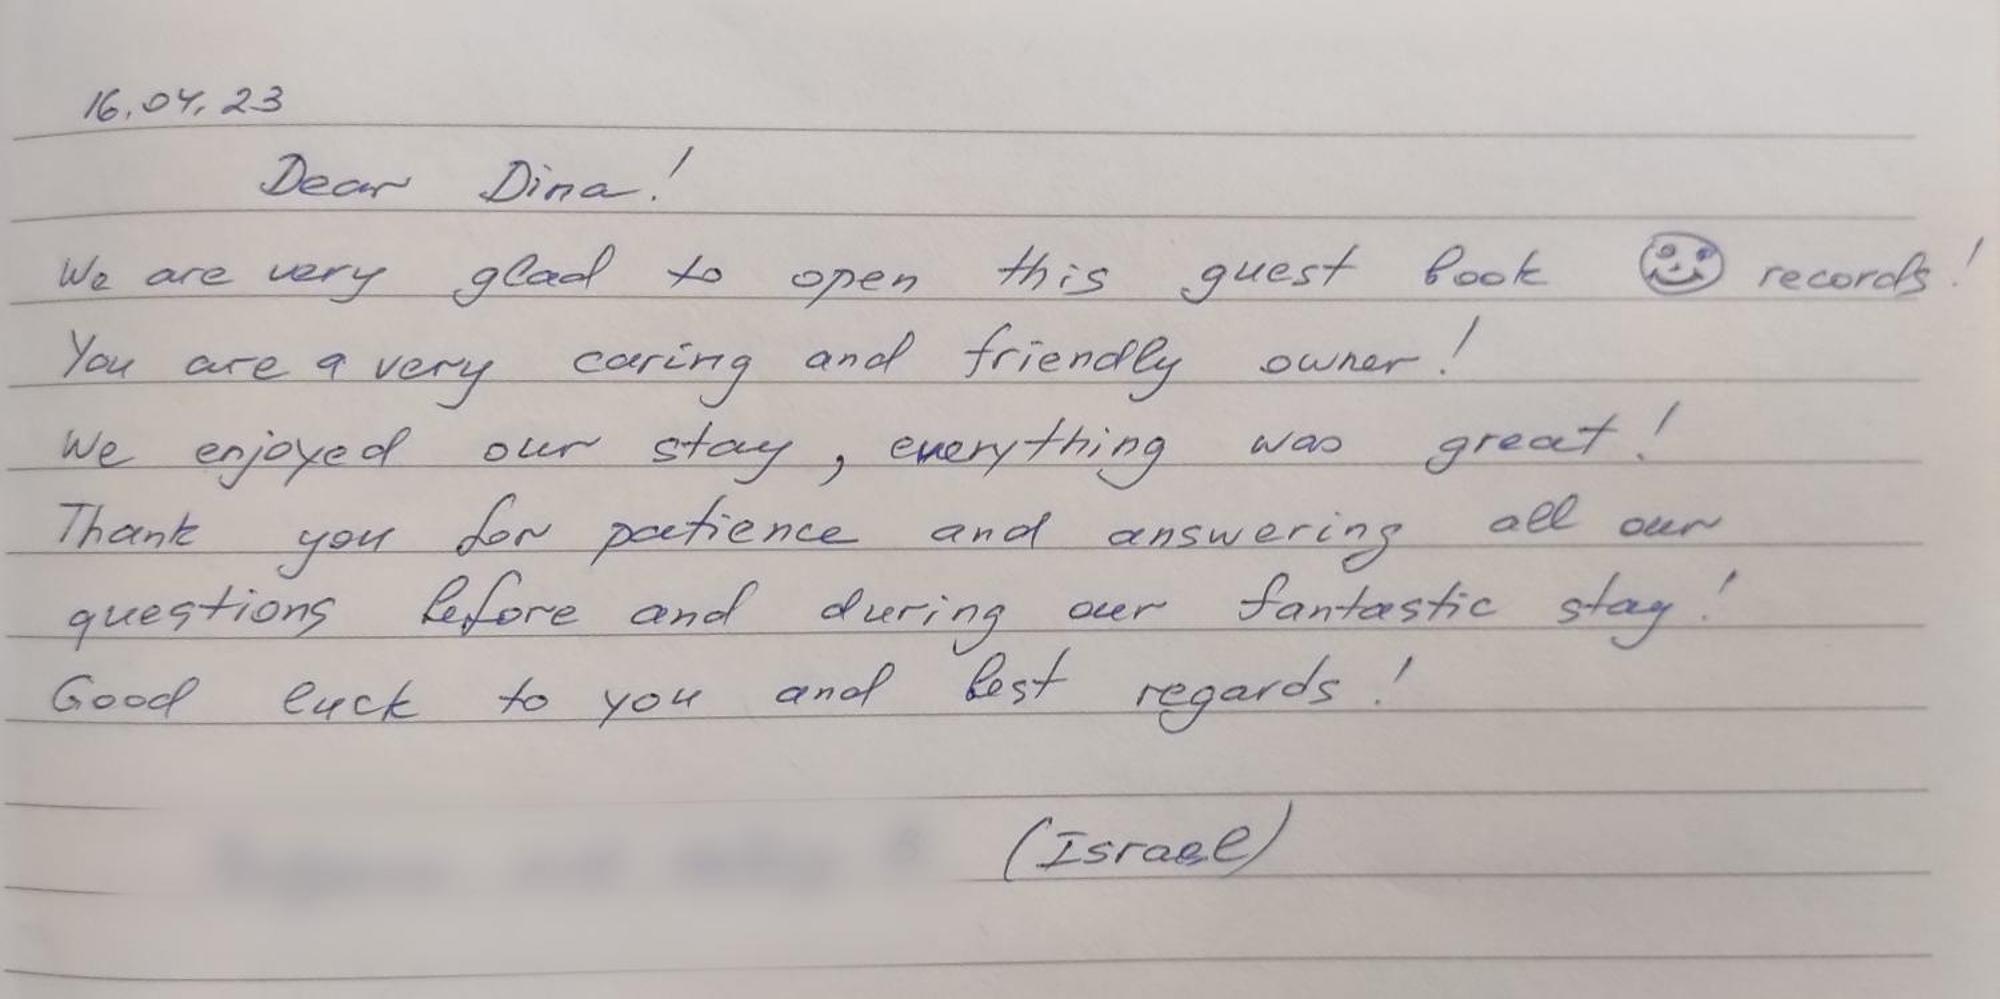 16.04.23
Dear Dina!
We are very glad to open this guest book ☺ records!
You are a very caring and friendly owner!
We enjoyed our stay, everything was great!
Thank you for patience and answering all our
questions before and during our fantastic stay!
Good luck to you and best regards!
(Israel)